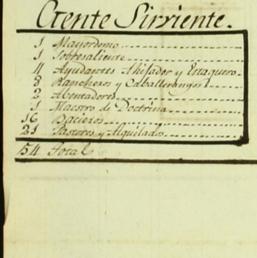 Gente Sirviente.
1 Mayordomo
1 Sobresaliente
4 Ayudantes Ahijador y Estaquero
3 Rancheros y Caballerangos
2 Abentadores
1 Maestro de Doctrina
16 Bacieros
21 Pastores y Alquilados
54 Total